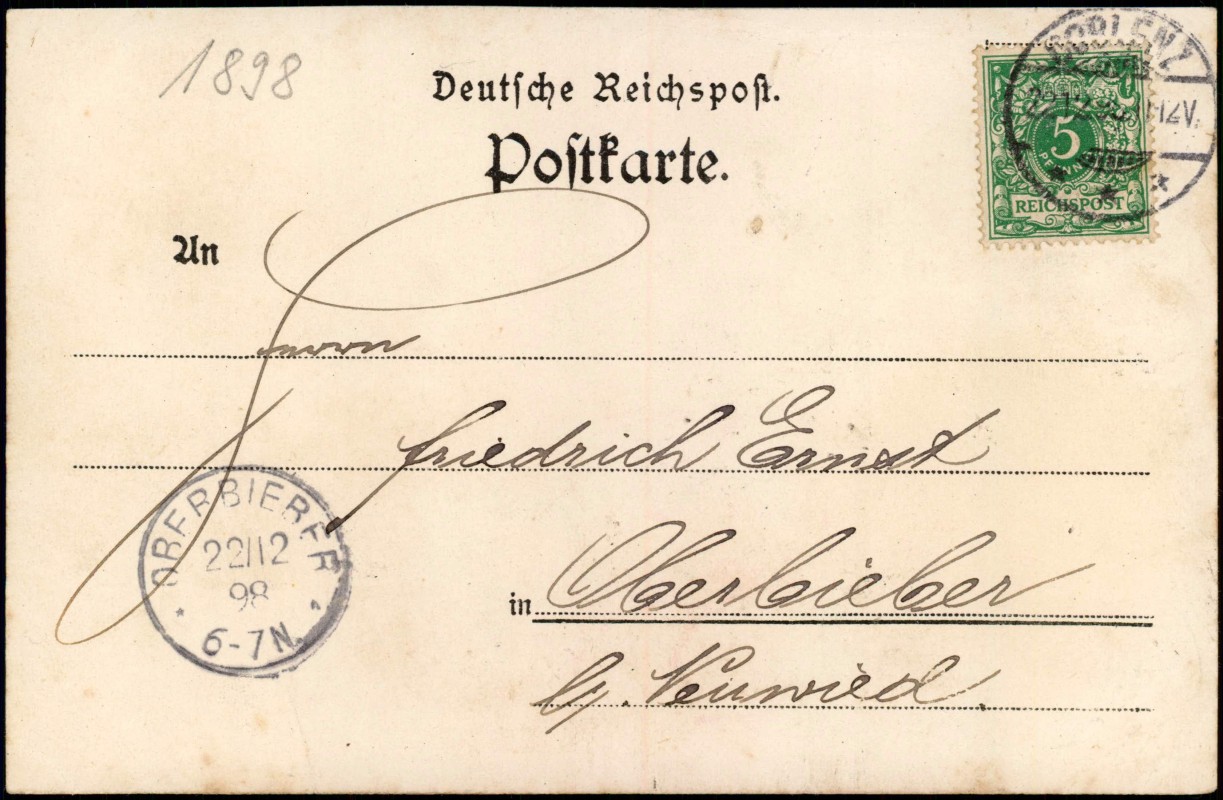 1898
Deutsche Reichspost.
Postkarte.
COBLENZ
22.12.98. 11-12V.
5
PFENNIG
REICHSPOST
An
Herrn
Friedrich Ernst
in Oberbieber
b/. Neuwied.
OBERBIEBER
22/12
98
6-7N.